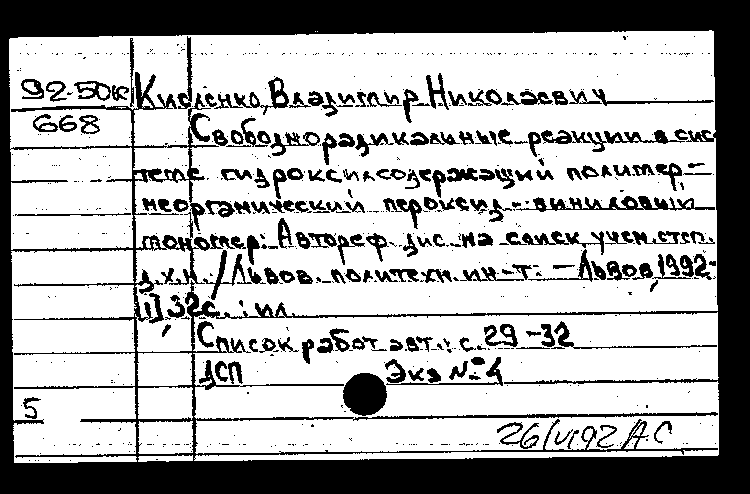 92-50к Кисленко, Владимир Николаевич
668 Свободнорадикальные реакции в сис
теме гидроксилсодержащий полимер-
неорганический пероксид - виниловый
мономер: Автореф. дис. на соиск. учен. степ.
д.х.н. / Львов. политехн. ин-т. - Львов, 1992-
[1], 32с. : ил.
Список работ авт.: с. 29-32
ДСП Экз № 4
5
26/VI92 А.С